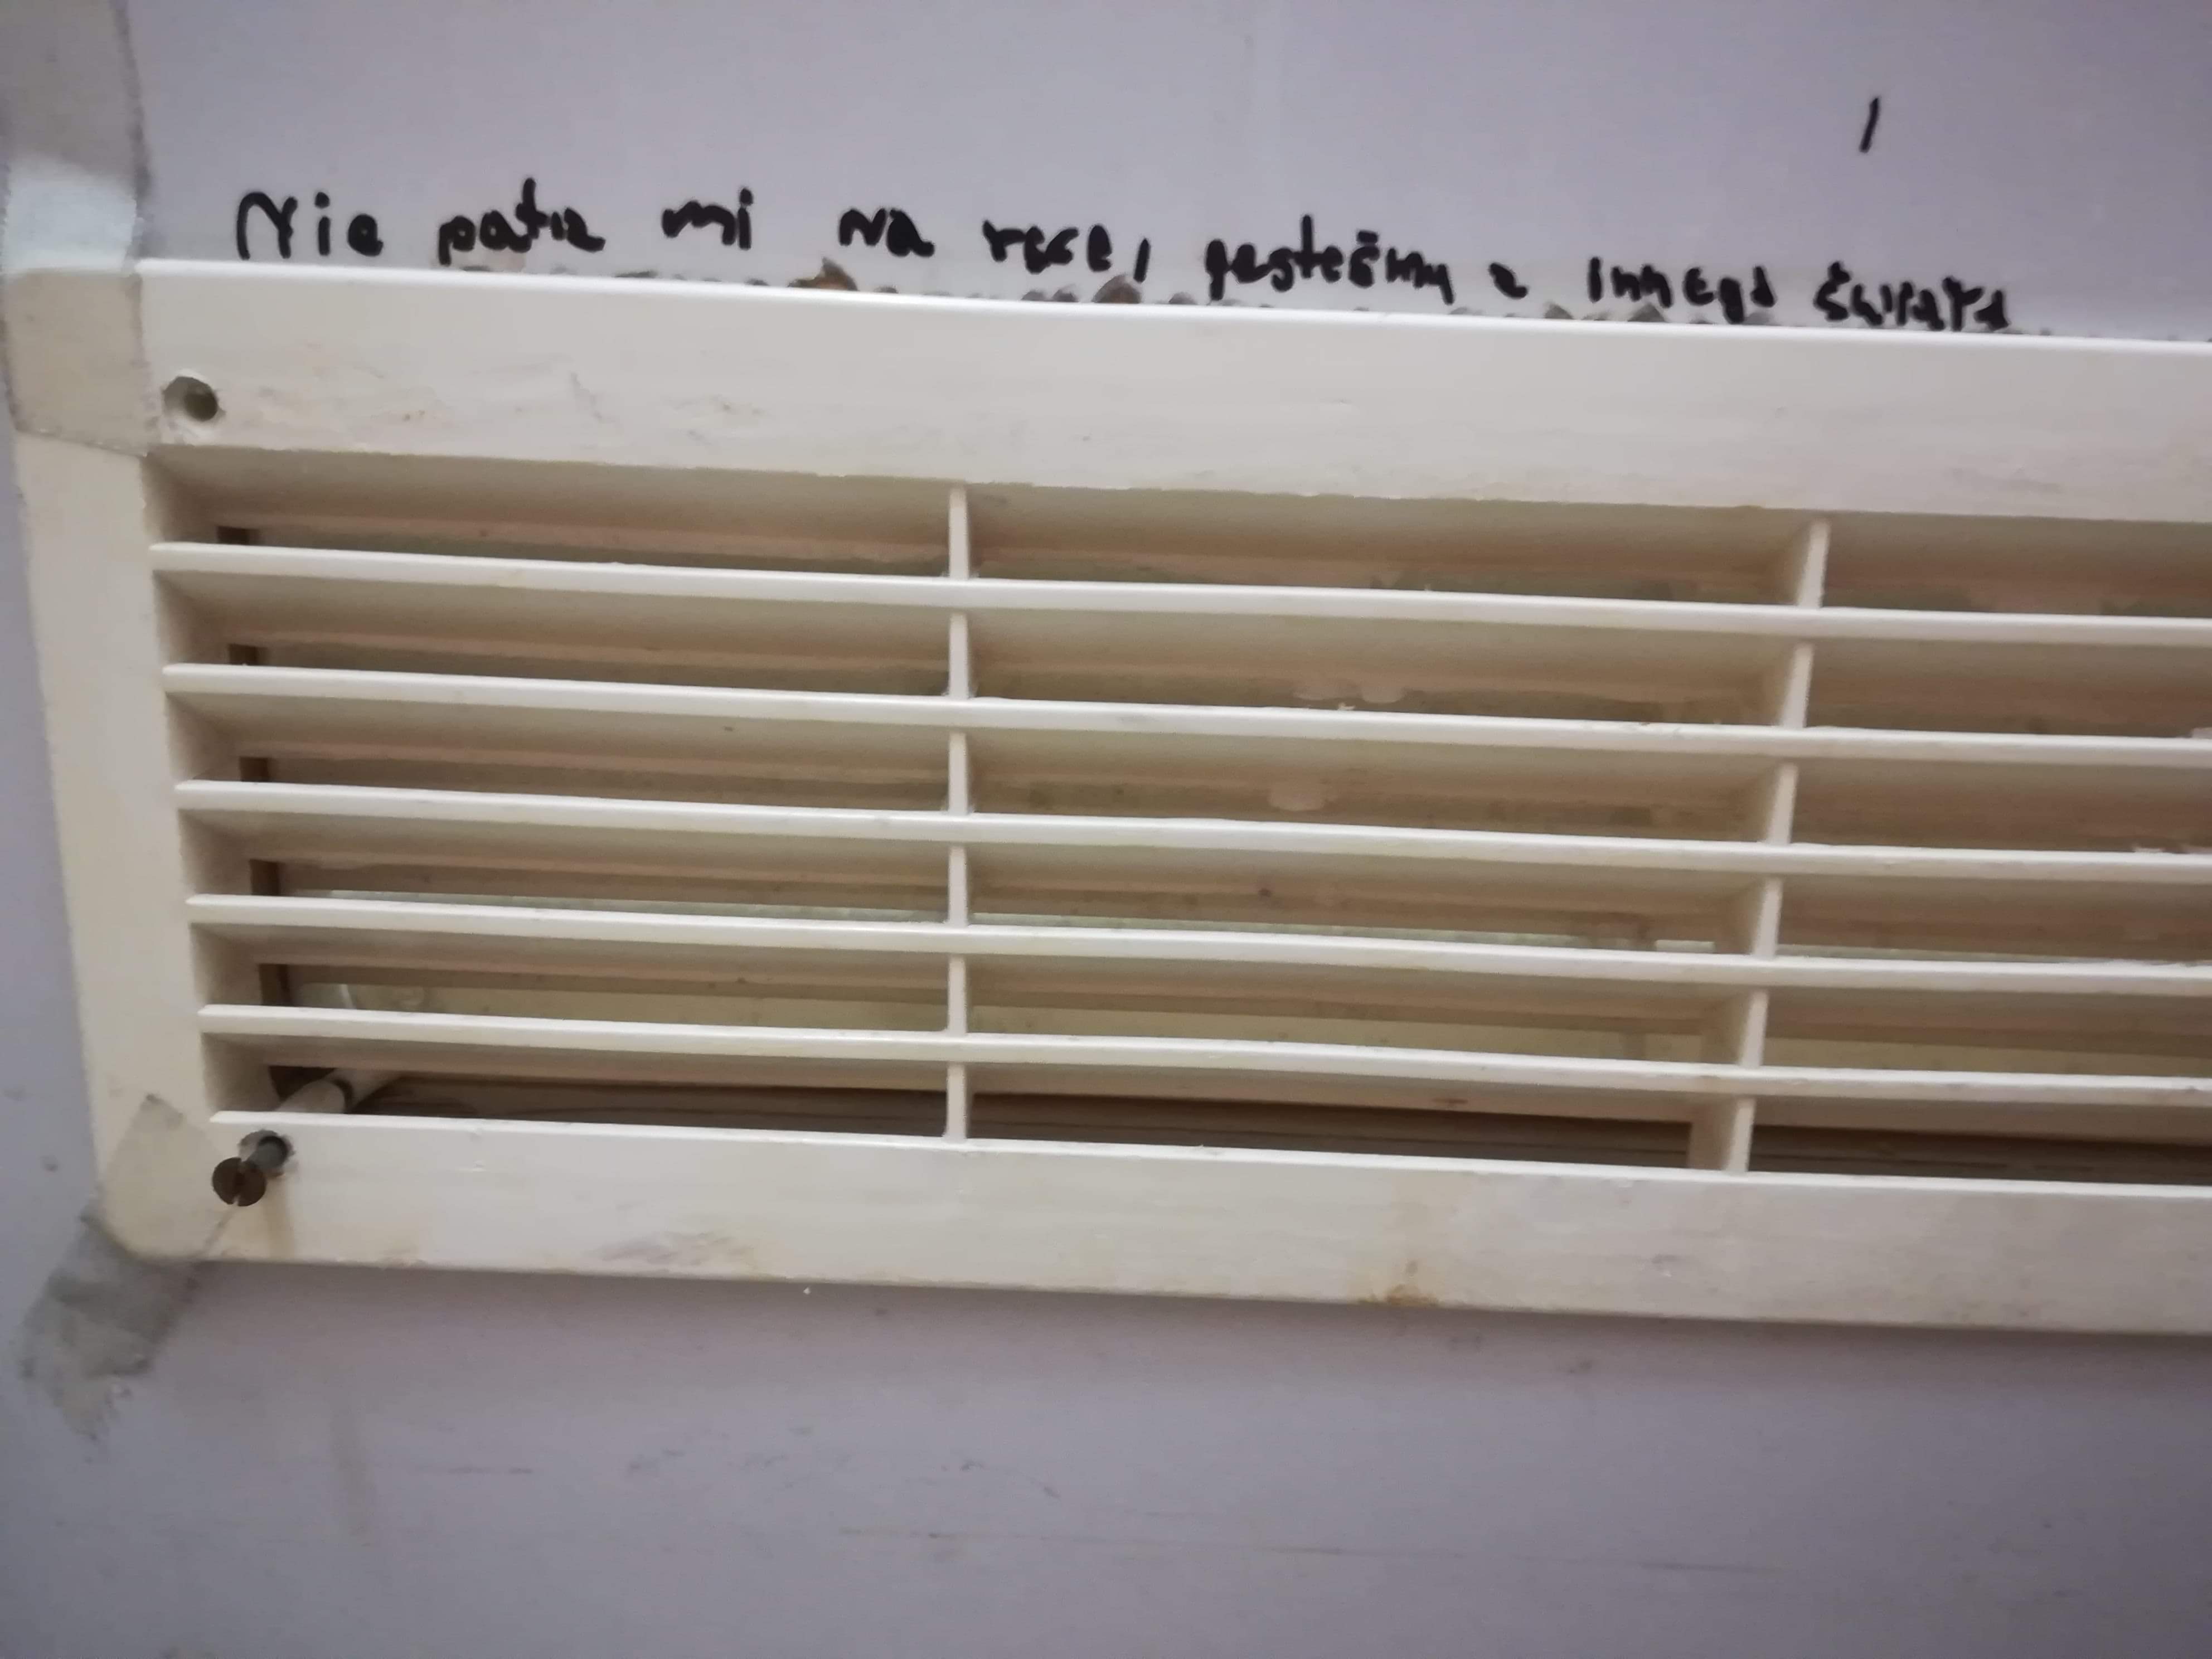 Nie patrz mi na ręce, jesteśmy z innego świata